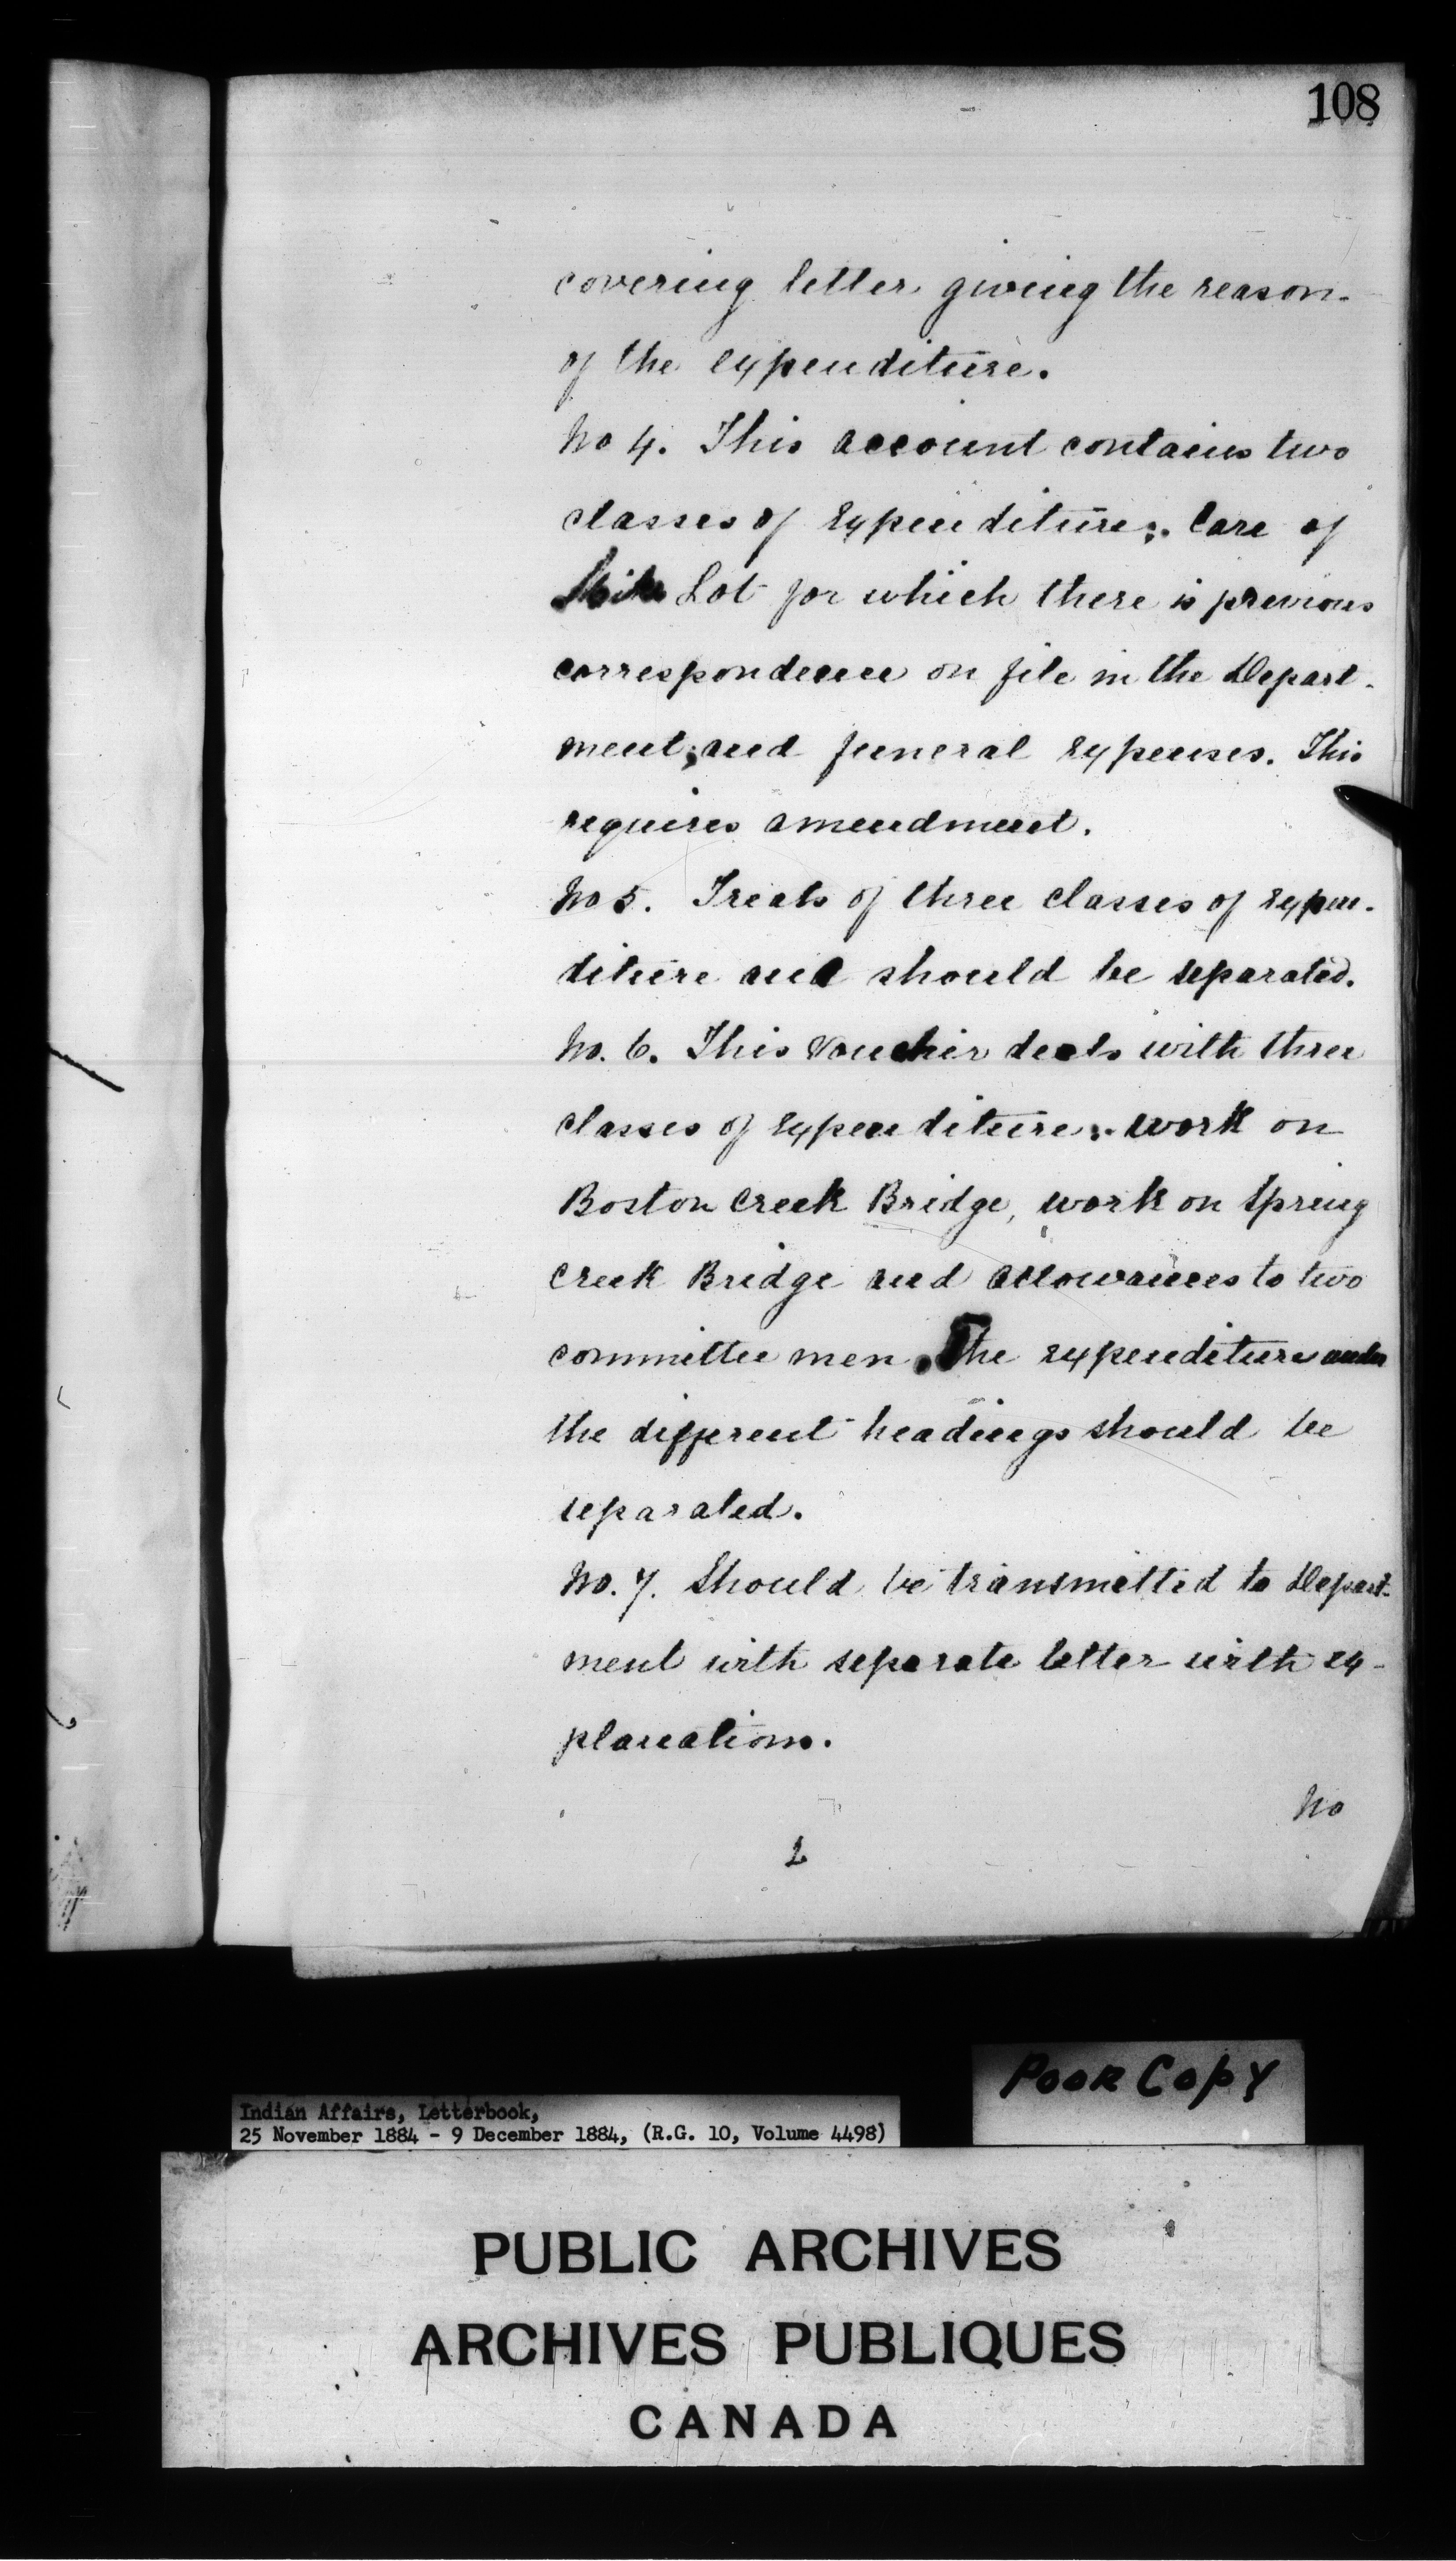 108
covering letter giving the reason
of the expenditure.
No 4. This account contains two
classes of expenditure:. Care of
Lot for which there is previous
correspondence on file in the Depart-
ment; and funeral expenses. This
requires amendment.
No 5. Treats of three classes of expen-
diture and should be separated.
No. 6. This voucher deals with three
classes of expenditure:- work on
Boston Creek Bridge, work on Spring
Creek Bridge and allowances to two
committee men. The expenditure under
the different headings should be
separated.
No. 7. Should be transmitted to Depart-
ment with separate letter with ex-
planations.
No
Poor Copy
Indian Affairs, Letterbook,
25 November 1884 - 9 December 1884, (R.G. 10, Volume 4498)
PUBLIC ARCHIVES
ARCHIVES PUBLIQUES
CANADA